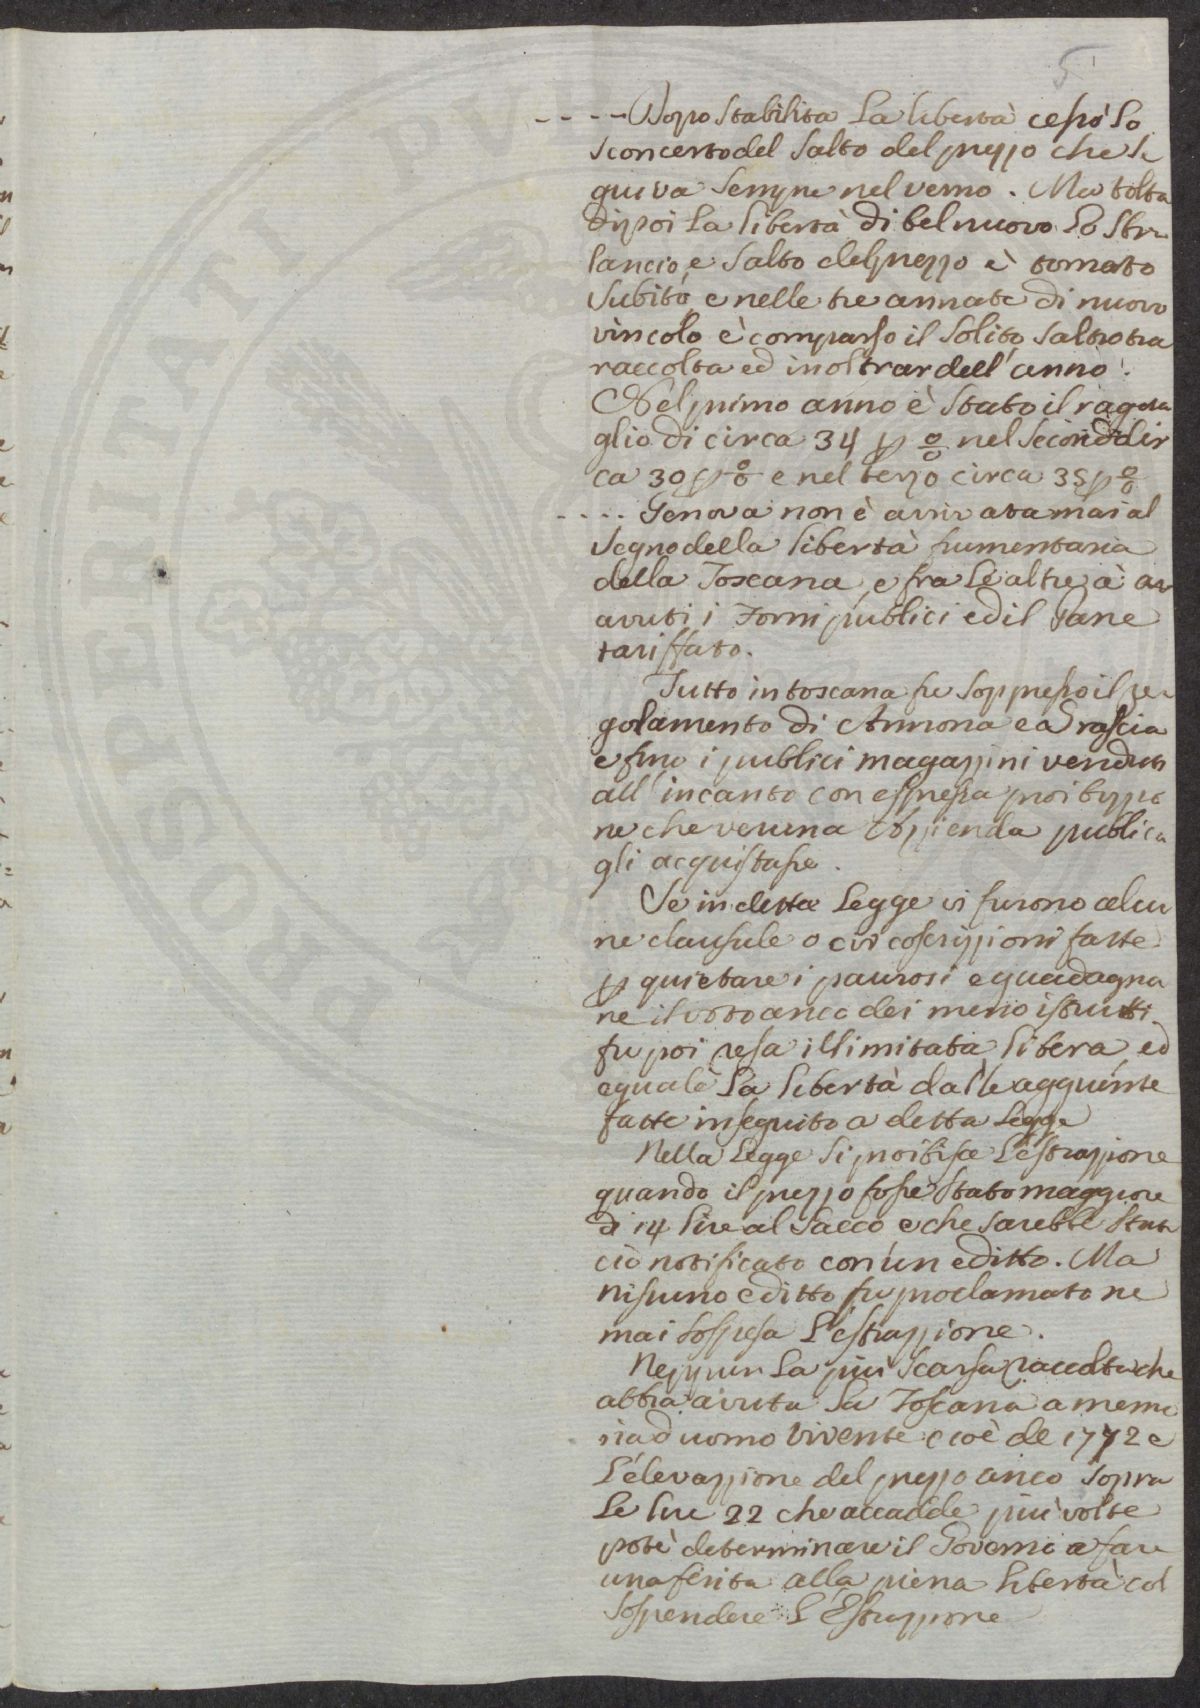 5
- - - - Dopo stabilita la libertà cessò lo
sconcerto del salto del prezzo che se
guiva sempre nel verno. Ma tolta
dipoi la libertà di bel nuovo lo stra
lancio, e salto del prezzo è tornato
subito, e nelle tre annate di nuovo
vincolo è comparso il solito salto tra
raccolta ed inoltrar dell'anno.
Nel primo anno è stato il raggua
glio di circa 34 p % nel secondo cir
ca 30 p % e nel terzo circa 35 p %
- - - - Genova non è arrivata mai al
segno della libertà frumentaria
della Toscana, e fra le altre à
avuti i Forni publici ed il Pane
tariffato.
Tutto in toscana fu soppresso il re
golamento di Annona e Grascia
e fino i publici magazzini venduti
all'incanto con espressa proibizio
ne che veruna azzienda publica
gli acquistasse.
Se in detta Legge vi furono alcu
ne clausule o circoscrizzioni fatte
p quietare i paurosi e guadagna
re il voto anco dei meno istrutti
fu poi resa illimitata, libera, ed
eguale la libertà dalle aggiunte
fatte in seguito a detta Legge
Nella Legge si proibisce l'estrazzione
quando il prezzo fosse stato maggiore
di 14 lire al sacco e che sarebbe stato
ciò notificato con un editto. Ma
nissuno editto fu proclamato ne
mai sospesa l'estrazzione.
Neppur la più scarsa raccolta che
abbia avuta la Toscana a memo
ria d'uomo vivente cioè de 1772 e
l'elevazzione del prezzo anco sopra
le lire 22 che accadde più volte
potè determinare il Governo a fare
una ferita alla piena libertà col
sospendere l'Estrazzione